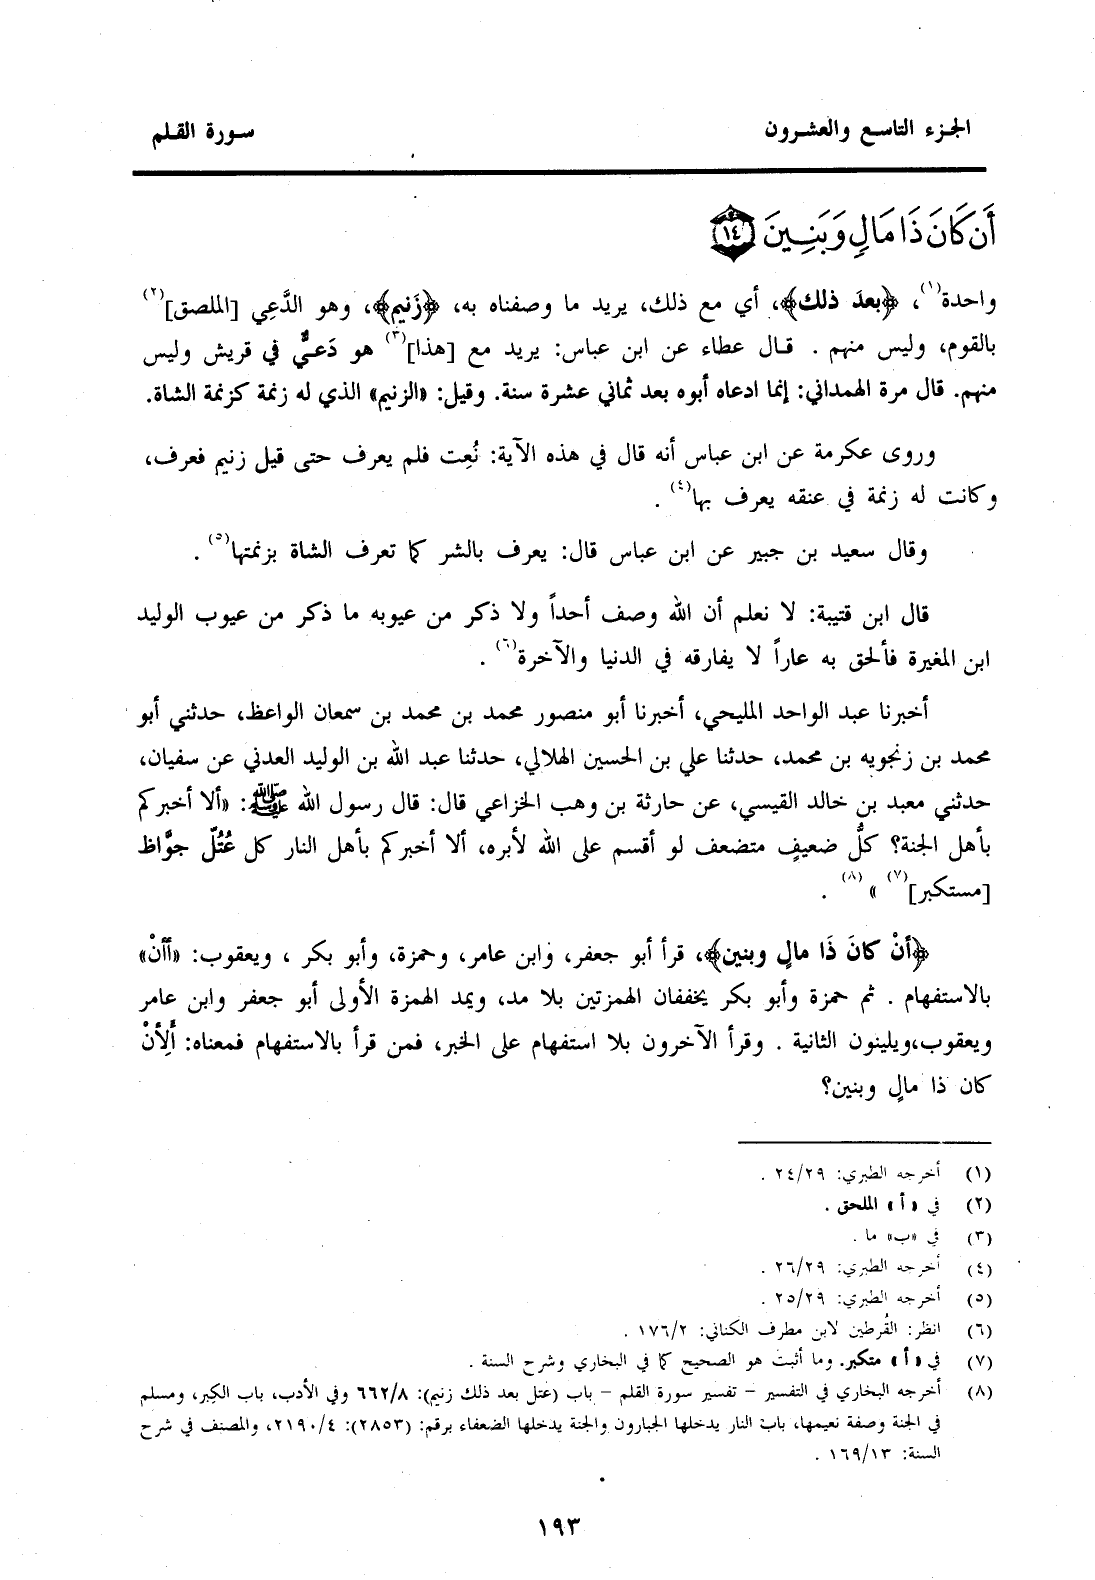 الجزء التاسع والعشرون
سورة القلم
أَن كَانَ ذَا مَالٍ وَبَنِينَ ﴿١٤﴾
واحدة(١)، ﴿بعدَ ذلك﴾، أي مع ذلك، يريد ما وصفناه به، ﴿زَنيم﴾، وهو الدَّعِي [الملصق](٢)
بالقوم، وليس منهم . قال عطاء عن ابن عباس: يريد مع [هذا](٣) هو دَعيٌّ في قريش وليس
منهم. قال مرة الهمداني: إنما ادعاه أبوه بعد ثماني عشرة سنة. وقيل: «الزنيم» الذي له زنمة كزنمة الشاة.
وروى عكرمة عن ابن عباس أنه قال في هذه الآية: نُعِت فلم يعرف حتى قيل زنيم فعرف،
وكانت له زنمة في عنقه يعرف بها(٤) .
وقال سعيد بن جبير عن ابن عباس قال: يعرف بالشر كما تعرف الشاة بزنمتها(٥) .
قال ابن قتيبة: لا نعلم أن الله وصف أحداً ولا ذكر من عيوبه ما ذكر من عيوب الوليد
ابن المغيرة فألحق به عاراً لا يفارقه في الدنيا والآخرة(٦) .
أخبرنا عبد الواحد المليحي، أخبرنا أبو منصور محمد بن محمد بن سمعان الواعظ، حدثني أبو
محمد بن زنجويه بن محمد، حدثنا علي بن الحسين الهلالي، حدثنا عبد الله بن الوليد العدني عن سفيان،
حدثني معبد بن خالد القيسي، عن حارثة بن وهب الخزاعي قال: قال رسول الله ﷺ: «ألا أخبركم
بأهل الجنة؟ كلُّ ضعيفٍ متضعف لو أقسم على الله لأبره، ألا أخبركم بأهل النار كل عُتُلّ جوَّاظ
[مستكبر](٧) »(٨) .
﴿أنْ كانَ ذَا مالٍ وبنين﴾، قرأ أبو جعفر، وابن عامر، وحمزة، وأبو بكر ، ويعقوب: «أأنْ»
بالاستفهام . ثم حمزة وأبو بكر يخففان الهمزتين بلا مد، ويمد الهمزة الأولى أبو جعفر وابن عامر
ويعقوب،ويلينون الثانية . وقرأ الآخرون بلا استفهام على الخبر، فمن قرأ بالاستفهام فمعناه: أَلِأنْ
كان ذا مالٍ وبنين؟
(١) أخرجه الطبري: ٢٤/٢٩ .
(٢) في «أ» الملحق .
(٣) في «ب» ما .
(٤) أخرجه الطبري: ٢٦/٢٩ .
(٥) أخرجه الطبري: ٢٥/٢٩ .
(٦) انظر: القُرطين لابن مطرف الكناني: ١٧٦/٢ .
(٧) في «أ» متكبر. وما أثبت هو الصحيح كما في البخاري وشرح السنة .
(٨) أخرجه البخاري في التفسير – تفسير سورة القلم – باب (عتل بعد ذلك زنيم): ٦٦٢/٨ وفي الأدب، باب الكِبر، ومسلم
في الجنة وصفة نعيمها، باب النار يدخلها الجبارون والجنة يدخلها الضعفاء برقم: (٢٨٥٣): ٢١٩٠/٤، والمصنف في شرح
السنة: ١٦٩/١٣ .
١٩٣